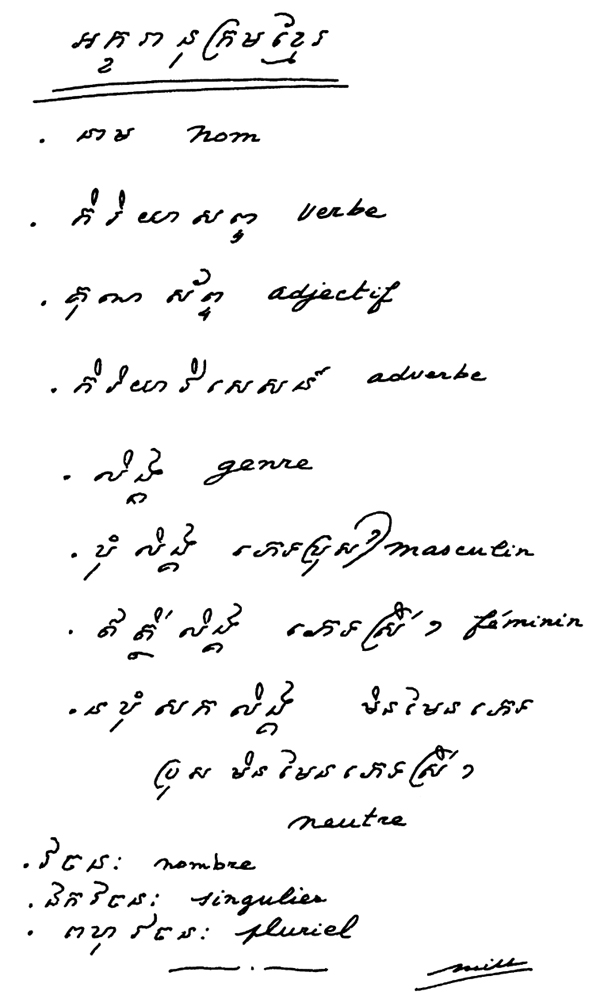 អក្ខរានុក្រមខ្មែរ
. នាម nom
. កិរិយាសព្ទ verbe
. គុណសព្ទ adjectif
. កិរិយាវិសេសន៍ adverbe
. លិង្គ genre
. បុំលិង្គ ភេទប្រុស masculin
. ឥត្ថីលិង្គ ភេទស្រី féminin
. នបុំសកលិង្គ មិនមែនភេទ
ប្រុស មិនមែនភេទស្រី
neutre
. វចនៈ nombre
. ឯកវចនៈ singulier
. ពហុវចនៈ pluriel